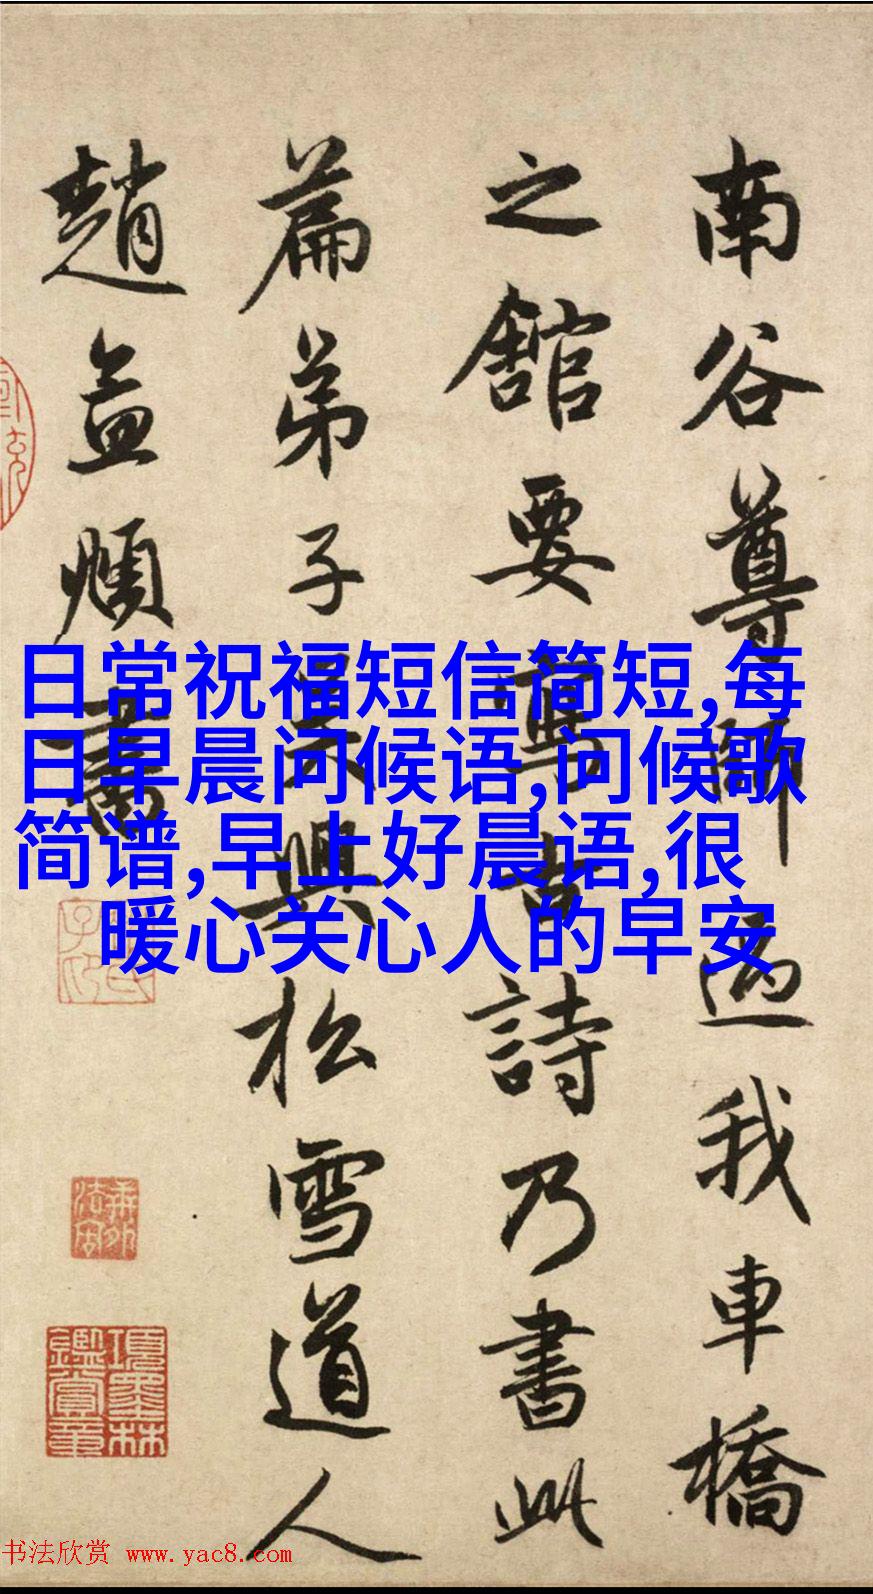 南谷尊師過我車橋
之館要古詩乃書此
篇弟子吳興松雪道人
趙孟頫書
日常祝福短信简短,每
日早晨问候语,问候歌
简谱,早上好晨语,很
暖心关心人的早安
項墨林鑑賞章
书法欣赏 www.yac8.com